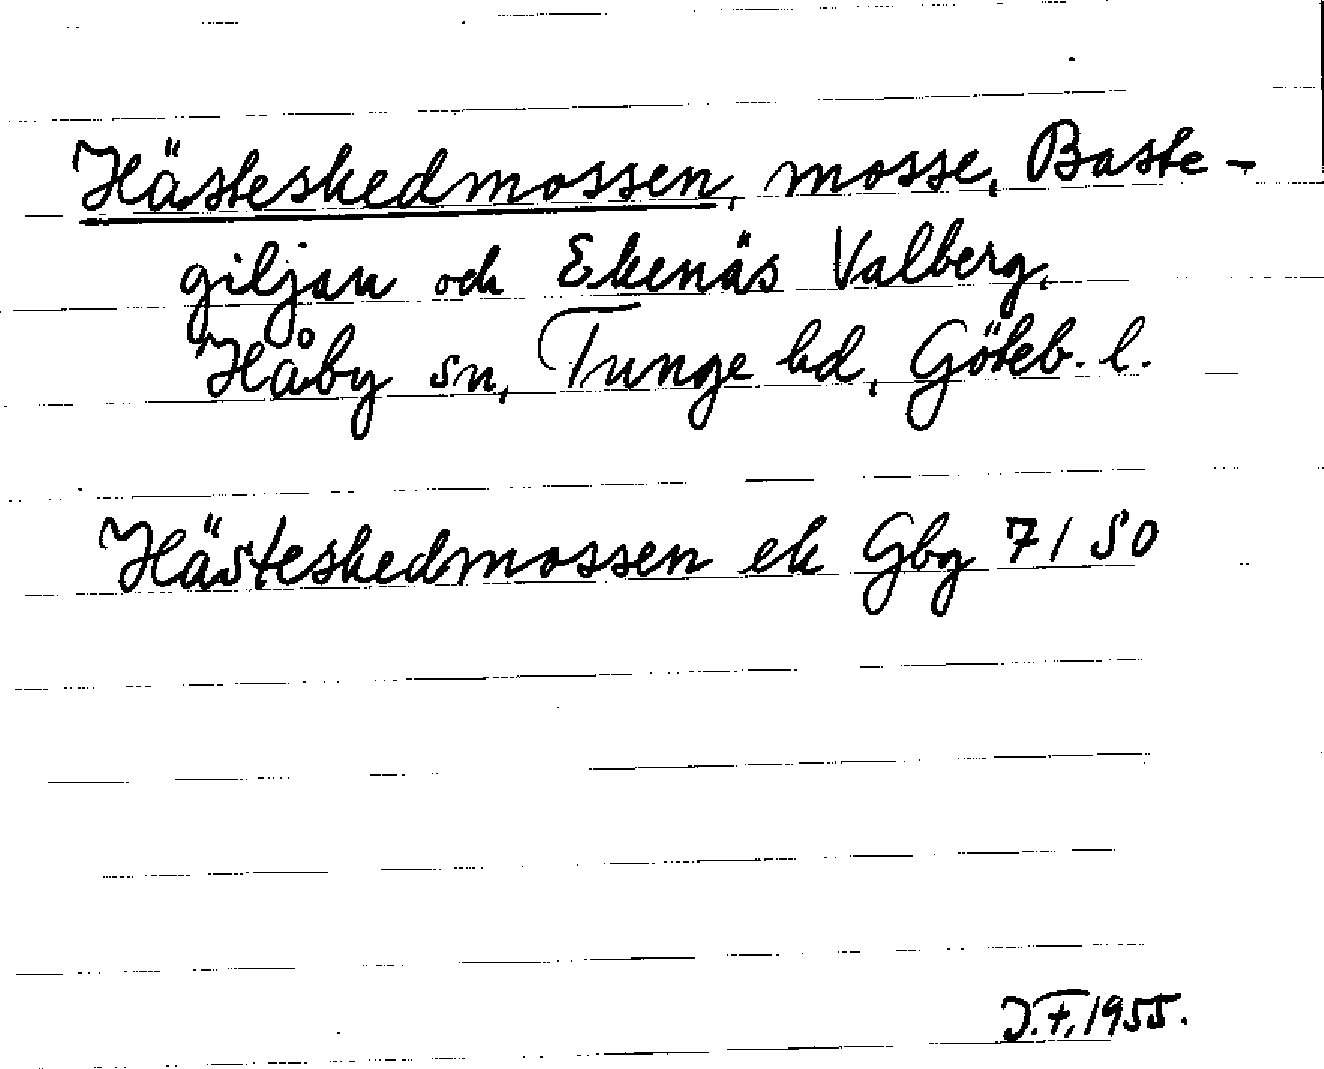 Hästeskedmossen, mosse, Baste-
giljan och Ekenäs Valberg,
Håby sn, Tunge hd, Göteb. l.
Hästeskedmossen ek Gbg 7/50
J.F. 1955.